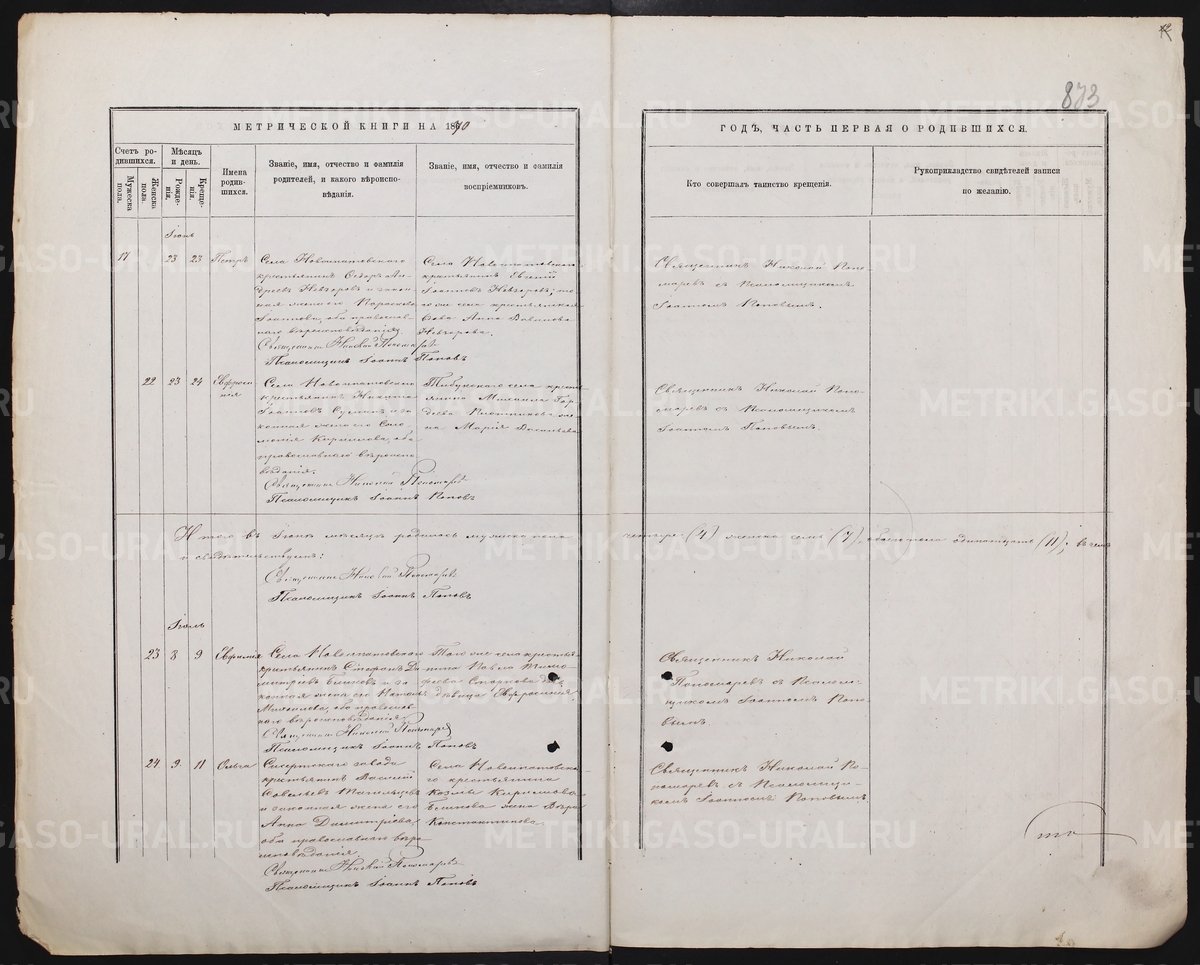 873
МЕТРИЧЕСКОЙ КНИГИ НА 1870
ГОДЪ, ЧАСТЬ ПЕРВАЯ О РОДИВШИХСЯ.
Счетъ родившихся.
Мужеска пола.
Женска пола.
Мѣсяцъ и день.
Рожденія.
Крещенія.
Имена родившихся.
Званіе, имя, отчество и фамилія
родителей, и какого вѣроиспо-
вѣданія.
Званіе, имя, отчество и фамилія
воспріемниковъ.
Кто совершалъ таинство крещенія.
Рукоприкладство свидѣтелей записи
по желанію.
Іюнь
17 23 23 Петръ
Села Новоипатовскаго
крестьянинъ Ан-
дреевъ и закон-
ная жена его
оба православ-
наго вѣроисповѣданія
Священникъ Николай Пономаревъ
Псаломщикъ Іоаннъ Поповъ
Села Новоипатовскаго
крестьянинъ Евгеній
Іоанновъ
Анна
Священникъ Николай Поно-
маревъ съ Псаломщикомъ
Іоанномъ Поповымъ.
22 23 24 Евфроси-
нія
Села Новоипатовскаго
крестьянинъ Никита
Іоанновъ и за-
конная жена его Соло-
монія Кириллова, оба
православнаго вѣроиспо-
вѣданія.
Священникъ Николай Пономаревъ
Псаломщикъ Іоаннъ Поповъ
села кресть-
янина Михаила Гор-
дѣева же-
на Марія
Священникъ Николай Поно-
маревъ съ Псаломщикомъ
Іоанномъ Поповымъ.
Итого въ Іюнѣ мѣсяцѣ родилось мужеска пола четыре (4) женска семь (7), обоего пола одиннадцать (11); въ чемъ
и свидѣтельствуемъ:
Священникъ Николай Пономаревъ
Псаломщикъ Іоаннъ Поповъ
Іюль
23 8 9 Евфимія
Села Новоипатовскаго
крестьянинъ Стефанъ Ди-
митріевъ и за-
конная жена его
Михаилова, оба православ-
наго вѣроисповѣданія.
Священникъ Николай Пономаревъ
Псаломщикъ Іоаннъ Поповъ
Того же села кресть-
янина Павла Тимо-
феева
дѣвица Евфросинія
Священникъ Николай
Пономаревъ съ Псалом-
щикомъ Іоанномъ Попо-
вымъ.
24 9 11 Ольга
Сысертскаго завода
крестьянинъ Василій
Савельевъ
и законная жена его
Анна Димитріева,
оба православнаго вѣро-
исповѣданія.
Священникъ Николай Пономаревъ
Псаломщикъ Іоаннъ Поповъ
Села Новоипатовска-
го крестьянина
Козмы Кириллова
жена Вѣра
Константинова.
Священникъ Николай По-
номаревъ съ Псаломщи-
комъ Іоанномъ Поповымъ
METRIKI.GASO-URAL.RU